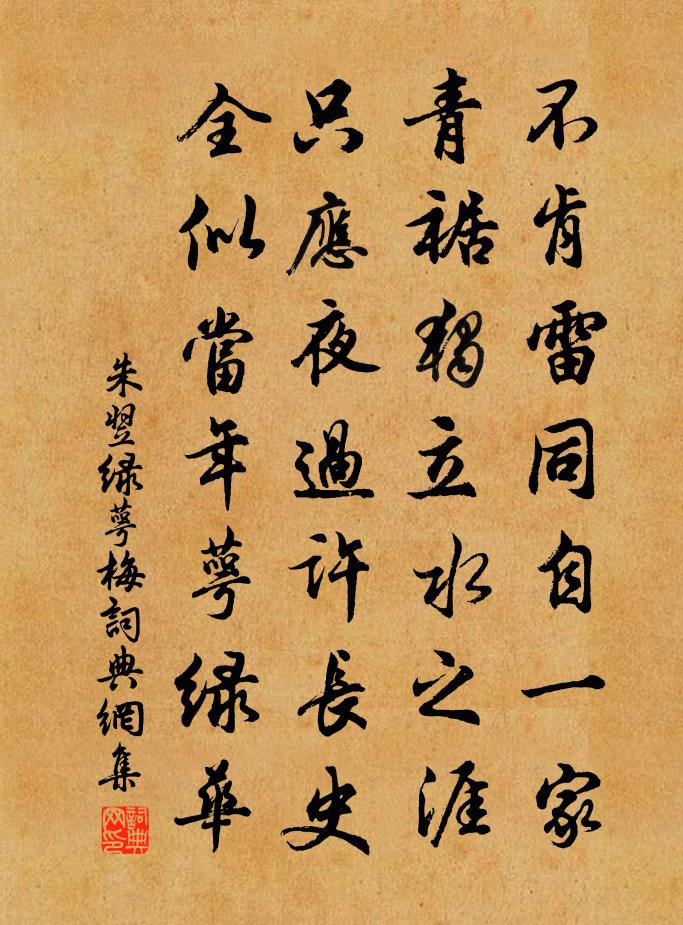 不肯雷同自一家
青裾獨立水之涯
只應夜過許長史
全似當年萼綠華
朱翌綠萼梅詞典網集
詞典网印